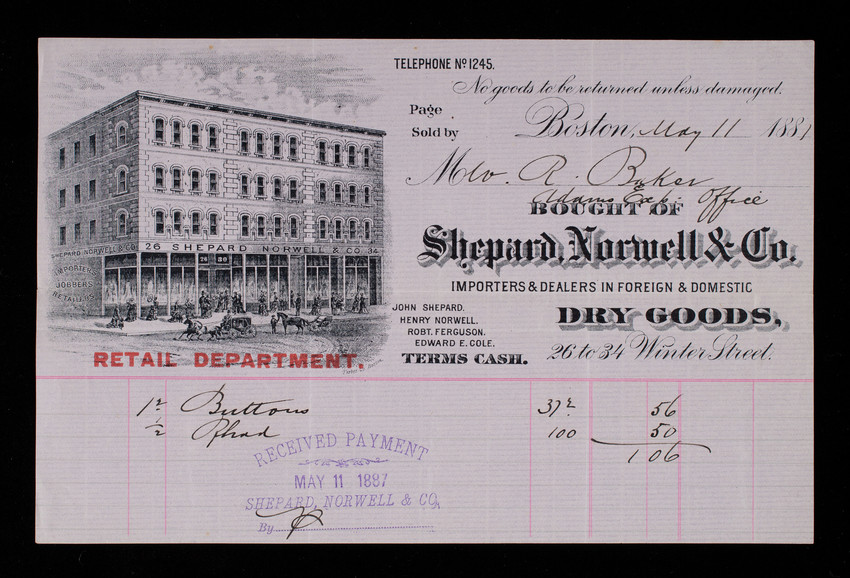 TELEPHONE Nº 1245.
No goods to be returned unless damaged.
Page
Sold by
Boston, May 11 1887
M R. Baker
Adams Exp. Office
BOUGHT OF
Shepard, Norwell & Co.
IMPORTERS & DEALERS IN FOREIGN & DOMESTIC
DRY GOODS,
JOHN SHEPARD.
HENRY NORWELL.
ROBT. FERGUSON.
EDWARD E. COLE.
TERMS CASH.
26 to 34 Winter Street.
SHEPARD NORWELL & CO.
26 SHEPARD NORWELL & CO 34
26 30
IMPORTERS
JOBBERS
RETAILERS
RETAIL DEPARTMENT.
1½ Buttons 37½ 56
½ 100 50
106
RECEIVED PAYMENT
MAY 11 1887
SHEPARD, NORWELL & CO,
By